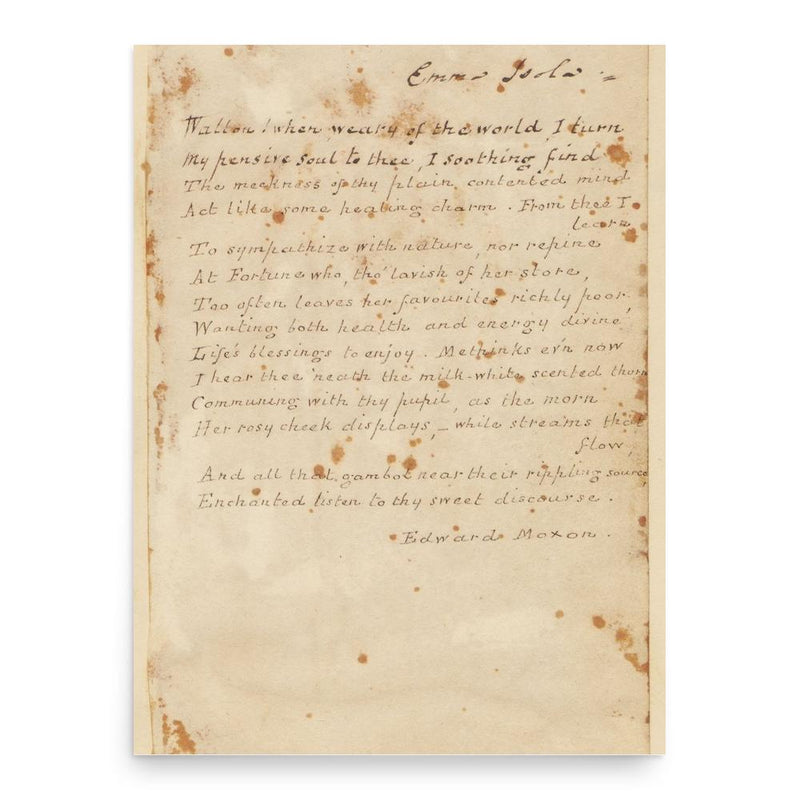 Emma Isola
Walton! when weary of the world I turn
My pensive soul to thee, I soothing find
The meekness of thy plain contented mind
Act like some healing charm. From thee I
learn
To sympathize with nature, nor repine
At Fortune who, tho' lavish of her store,
Too often leaves her favourites richly poor,
Wanting both health and energy divine
Life's blessings to enjoy. Methinks ev'n now
I hear thee 'neath the milk-white scented thorn
Communing with thy pupil, as the morn
Her rosy cheek displays, – while streams that
flow,
And all that gambol near their rippling source,
Enchanted listen to thy sweet discourse.
Edward Moxon.